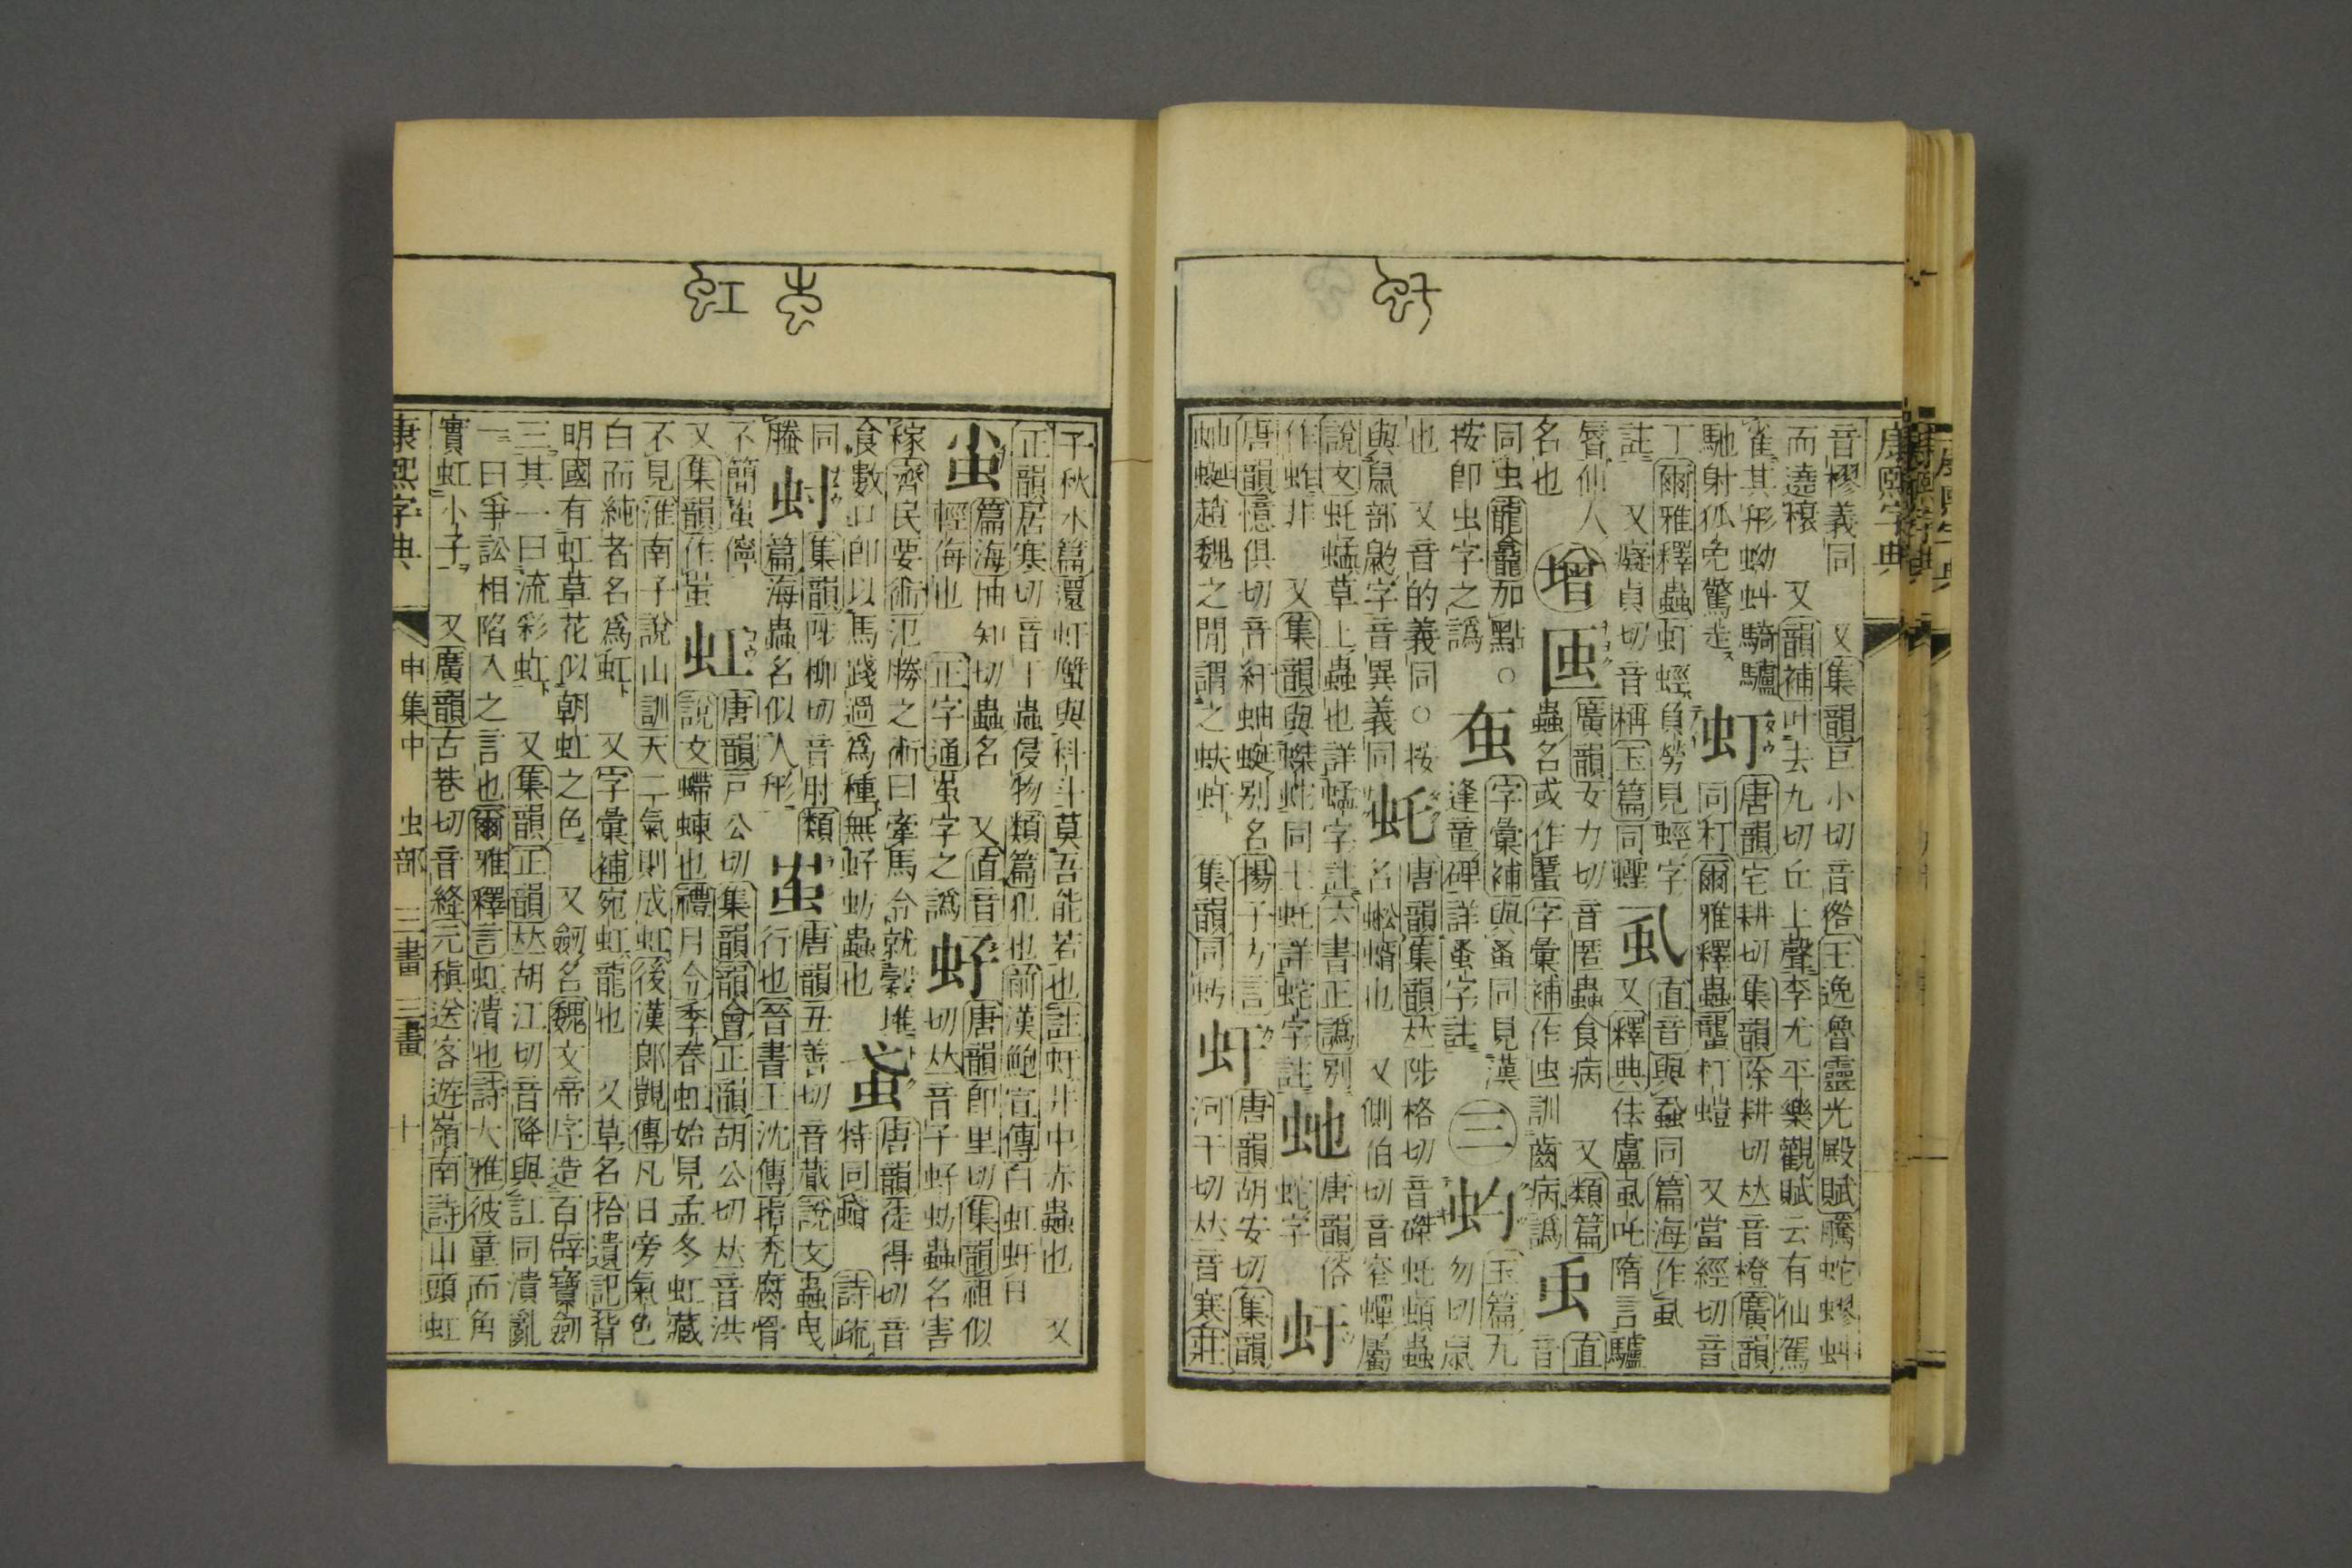 康熙字典
音樛義同　又集韻巨小切音𦃓王逸魯靈光殿賦騰蛇蟉虯
而遶穣　又韻補叶去九切丘上聲李尤平樂觀賦云有仙駕
雀其形蚴虯騎驢
虰
唐韻宅耕切集韻除耕切𠀤音橙廣韻
馳射狐兔驚走
同朾爾雅釋蟲蠪朾螘　又當經切音
丁爾雅釋蟲虰蛵負勞見蛵字
註　又癡貞切音檉玉篇同蟶
虱
直音與蝨同篇海作虱
又釋典佉盧虱吒隋言驢
脣仙人
增
𧈩
廣韻女力切音匿蟲食病　又類篇
蟲名或作䘌字彙補作𧈩訓齒病譌
名也
䖝
直音
同虫龍龕加點○
按卽虫字之譌
䖣
字彙補與蚤同見漢
逢童碑詳蚤字註
三
虳
玉篇九
勿切鼠
也　又音的義同○按
與鼠部𪕀字音異義同
虴
唐韻集韻𠀤陟格切音磔虴蜢蟲
名蚣蝑也　又側伯切音窄蟬屬
說文虴蜢草上蟲也詳蜢字註六書正譌別
作蚱非　又集韻與蠂蛇同土虴詳蛇字註
虵
唐韻俗
蛇字
虶
唐韻憶俱切音紆蚰蜒別名揚子方言
蚰蜒趙魏之閒謂之蚨虶　集韻同蚄
虷
唐韻胡安切集韻
河干切𠀤音寒莊
子秋水篇還虷蟹與科斗莫吾能若也註虷井中赤蟲也　又
正韻居寒切音干蟲侵物類篇犯也前漢鮑宣傳白虹虷日
蚩
篇海抽知切蟲名　又直音
輕侮也　正字通蚩字之譌
虸
唐韻卽里切集韻祖似
切𠀤音子虸蚄蟲名害
稼齊民要術氾勝之術曰牽馬令就穀堆
食數口卽以馬踐過爲種無虸蚄蟲也
䖧
唐韻徒得切音
特同螣　詩疏
同
螣
虯
集韻陟柳切音肘類
篇海蟲名似人形
蚩
唐韻丑善切音蕆說文蟲曳
行也晉書王沈傳指禿腐骨
不簡蚩儜
又集韻作蚩
虹
唐韻戸公切集韻韻會正韻胡公切𠀤音洪
說文螮蝀也禮月令季春虹始見孟冬虹藏
不見淮南子說山訓天二氣則成虹後漢郞顗傳凡日旁氣色
白而純者名爲虹　又字彙補宛虹龍也　又草名拾遺記背
明國有虹草花似朝虹之色　又劒名魏文帝序造百辟寶劒
三其一曰流彩虹　又集韻正韻𠀤胡江切音降與訌同潰亂
一曰爭訟相陷入之言也爾雅釋言虹潰也詩大雅彼童而角
實虹小子　又廣韻古巷切音絳元稹送客遊嶺南詩山頭虹
康熙字典　申集中　虫部　二畫　三畫　十